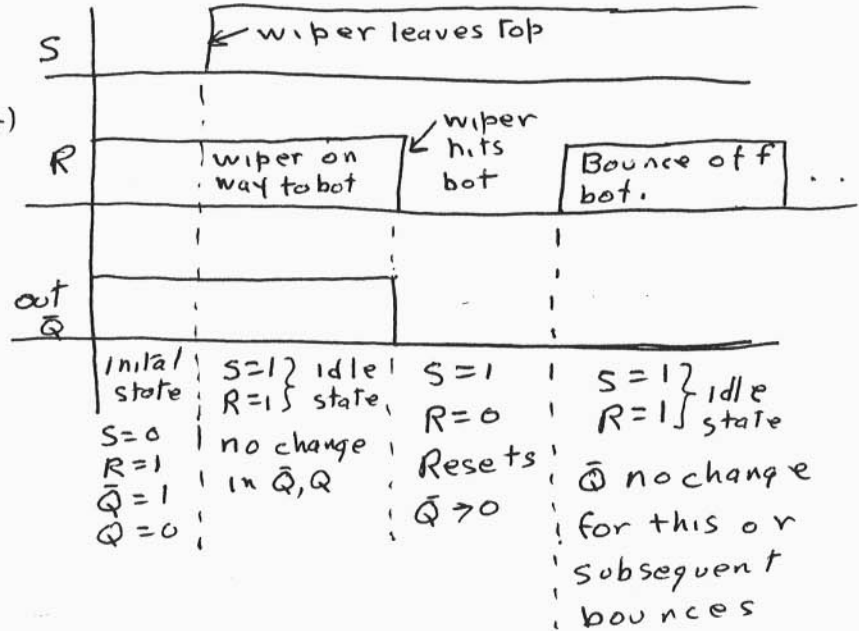 S
wiper leaves Top
-)
R
wiper on
way to bot
wiper
hits
bot
Bounce off
bot.
..
out
Q̄
inital
state
S=0
R=1
Q̄=1
Q=0
S=1} idle
R=1} state,
no change
in Q̄, Q
S=1
R=0
Resets
Q̄→0
S=1} idle
R=1} state
Q̄ no change
for this or
subsequent
bounces